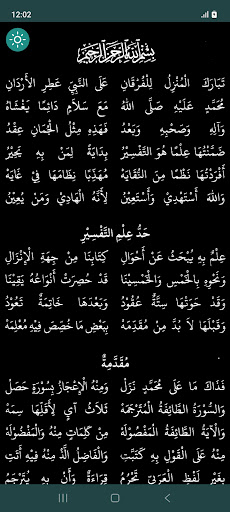 12:02
بِسْمِ اللَّهِ الرَّحْمَنِ الرَّحِيمِ
تَبَارَكَ الْمُنْزِلُ لِلْفُرْقَانِ عَلَى النَّبِيِّ عَطِرِ الْأَرْدَانِ
مُحَمَّدٍ عَلَيْهِ صَلَّى اللهُ مَعَ سَلَامٍ دَائِمًا يَغْشَاهُ
وَآلِهِ وَصَحْبِهِ وَبَعْدُ فَهَذِهِ مِثْلُ الْجُمَانِ عِقْدُ
ضَمَّنْتُهَا عِلْمًا هُوَ التَّفْسِيرُ بِدَايَةً لِمَنْ بِهِ يَحِيرُ
أَفْرَدْتُهَا نَظْمًا مِنَ النُّقَايَهْ مُهَذِّبًا نِظَامَهَا فِي غَايَهْ
وَاللهَ أَسْتَهْدِي وَأَسْتَعِينُ لِأَنَّهُ الْهَادِي وَمَنْ يُعِينُ
حَدُّ عِلْمِ التَّفْسِيرِ
عِلْمٌ بِهِ يُبْحَثُ عَنْ أَحْوَالِ كِتَابِنَا مِنْ جِهَةِ الْإِنْزَالِ
وَنَحْوِهِ بِالْخَمْسِ وَالْخَمْسِينَا قَدْ حُصِرَتْ أَنْوَاعُهُ يَقِينَا
وَقَدْ حَوَتْهَا سِتَّةٌ عُقُودُ وَبَعْدَهَا خَاتِمَةٌ تَعُودُ
وَقَبْلَهَا لَا بُدَّ مِنْ مُقَدِّمَهْ بِبَعْضِ مَا خُصِّصَ فِيهِ مُعْلِمَهْ
مُقَدِّمَةٌ
فَذَاكَ مَا عَلَى مُحَمَّدٍ نَزَلْ وَمِنْهُ الْإِعْجَازُ بِسُورَةٍ حَصَلْ
وَالسُّورَةُ الطَّائِفَةُ الْمُتَرْجَمَهْ ثَلَاثُ آيٍ لِأَقَلِّهَا سِمَهْ
وَالْآيَةُ الطَّائِفَةُ الْمَفْصُولَهْ مِنْ كَلِمَاتٍ مِنْهُ وَالْمَفْضُولَهْ
مِنْهُ عَلَى الْقَوْلِ لَهُ كَتَبَّتِ وَالْفَاضِلُ الَّذْ مِنْهُ فِيهِ أَتَتِ
بِغَيْرِ لَفْظِ الْعَرَبِيِّ تَحْرُمُ قِرَاءَةٌ وَأَنْ بِهِ يُتَرْجَمُ